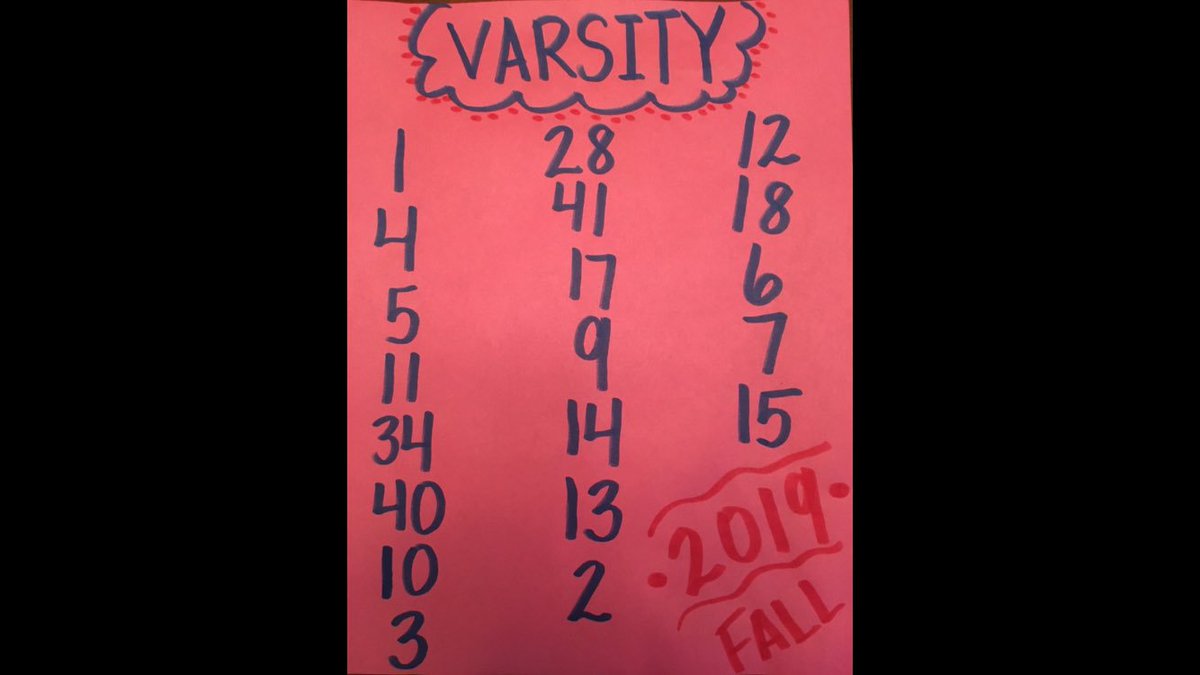 VARSITY
1
4
5
11
34
40
10
3
28
41
17
9
14
13
2
12
18
6
7
15
2019
FALL